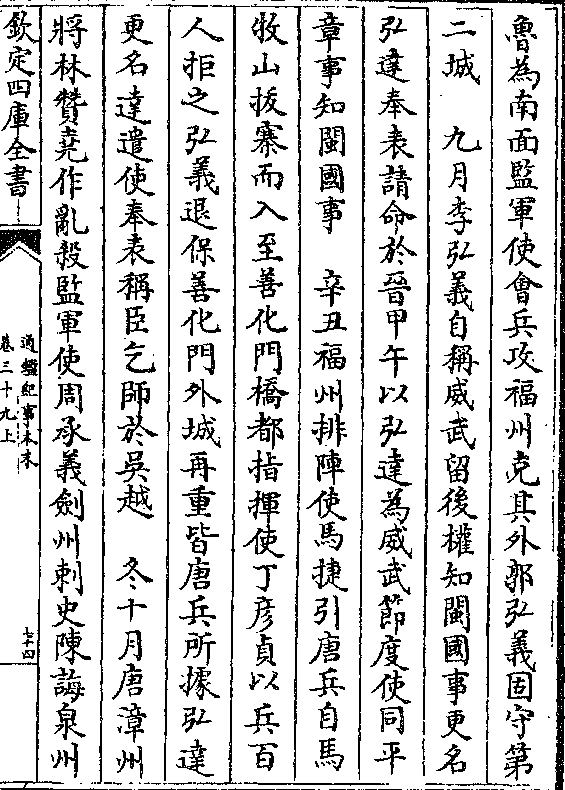 魯為南面監軍使會兵攻福州克其外郭弘義固守第
二城　九月李弘義自稱威武留後權知閩國事更名
弘達奉表請命於晉甲午以弘達為威武節度使同平
章事知閩國事　辛丑福州排陣使馬捷引唐兵自馬
牧山拔寨而入至善化門橋都指揮使丁彦貞以兵百
人拒之弘義退保善化門外城再重皆唐兵所據弘達
更名達遣使奉表稱臣乞師於吳越　冬十月唐漳州
將林贊堯作亂殺監軍使周承義劍州刺史陳誨泉州
欽定四庫全書
通鑑紀事本末
卷三十九上
七十四